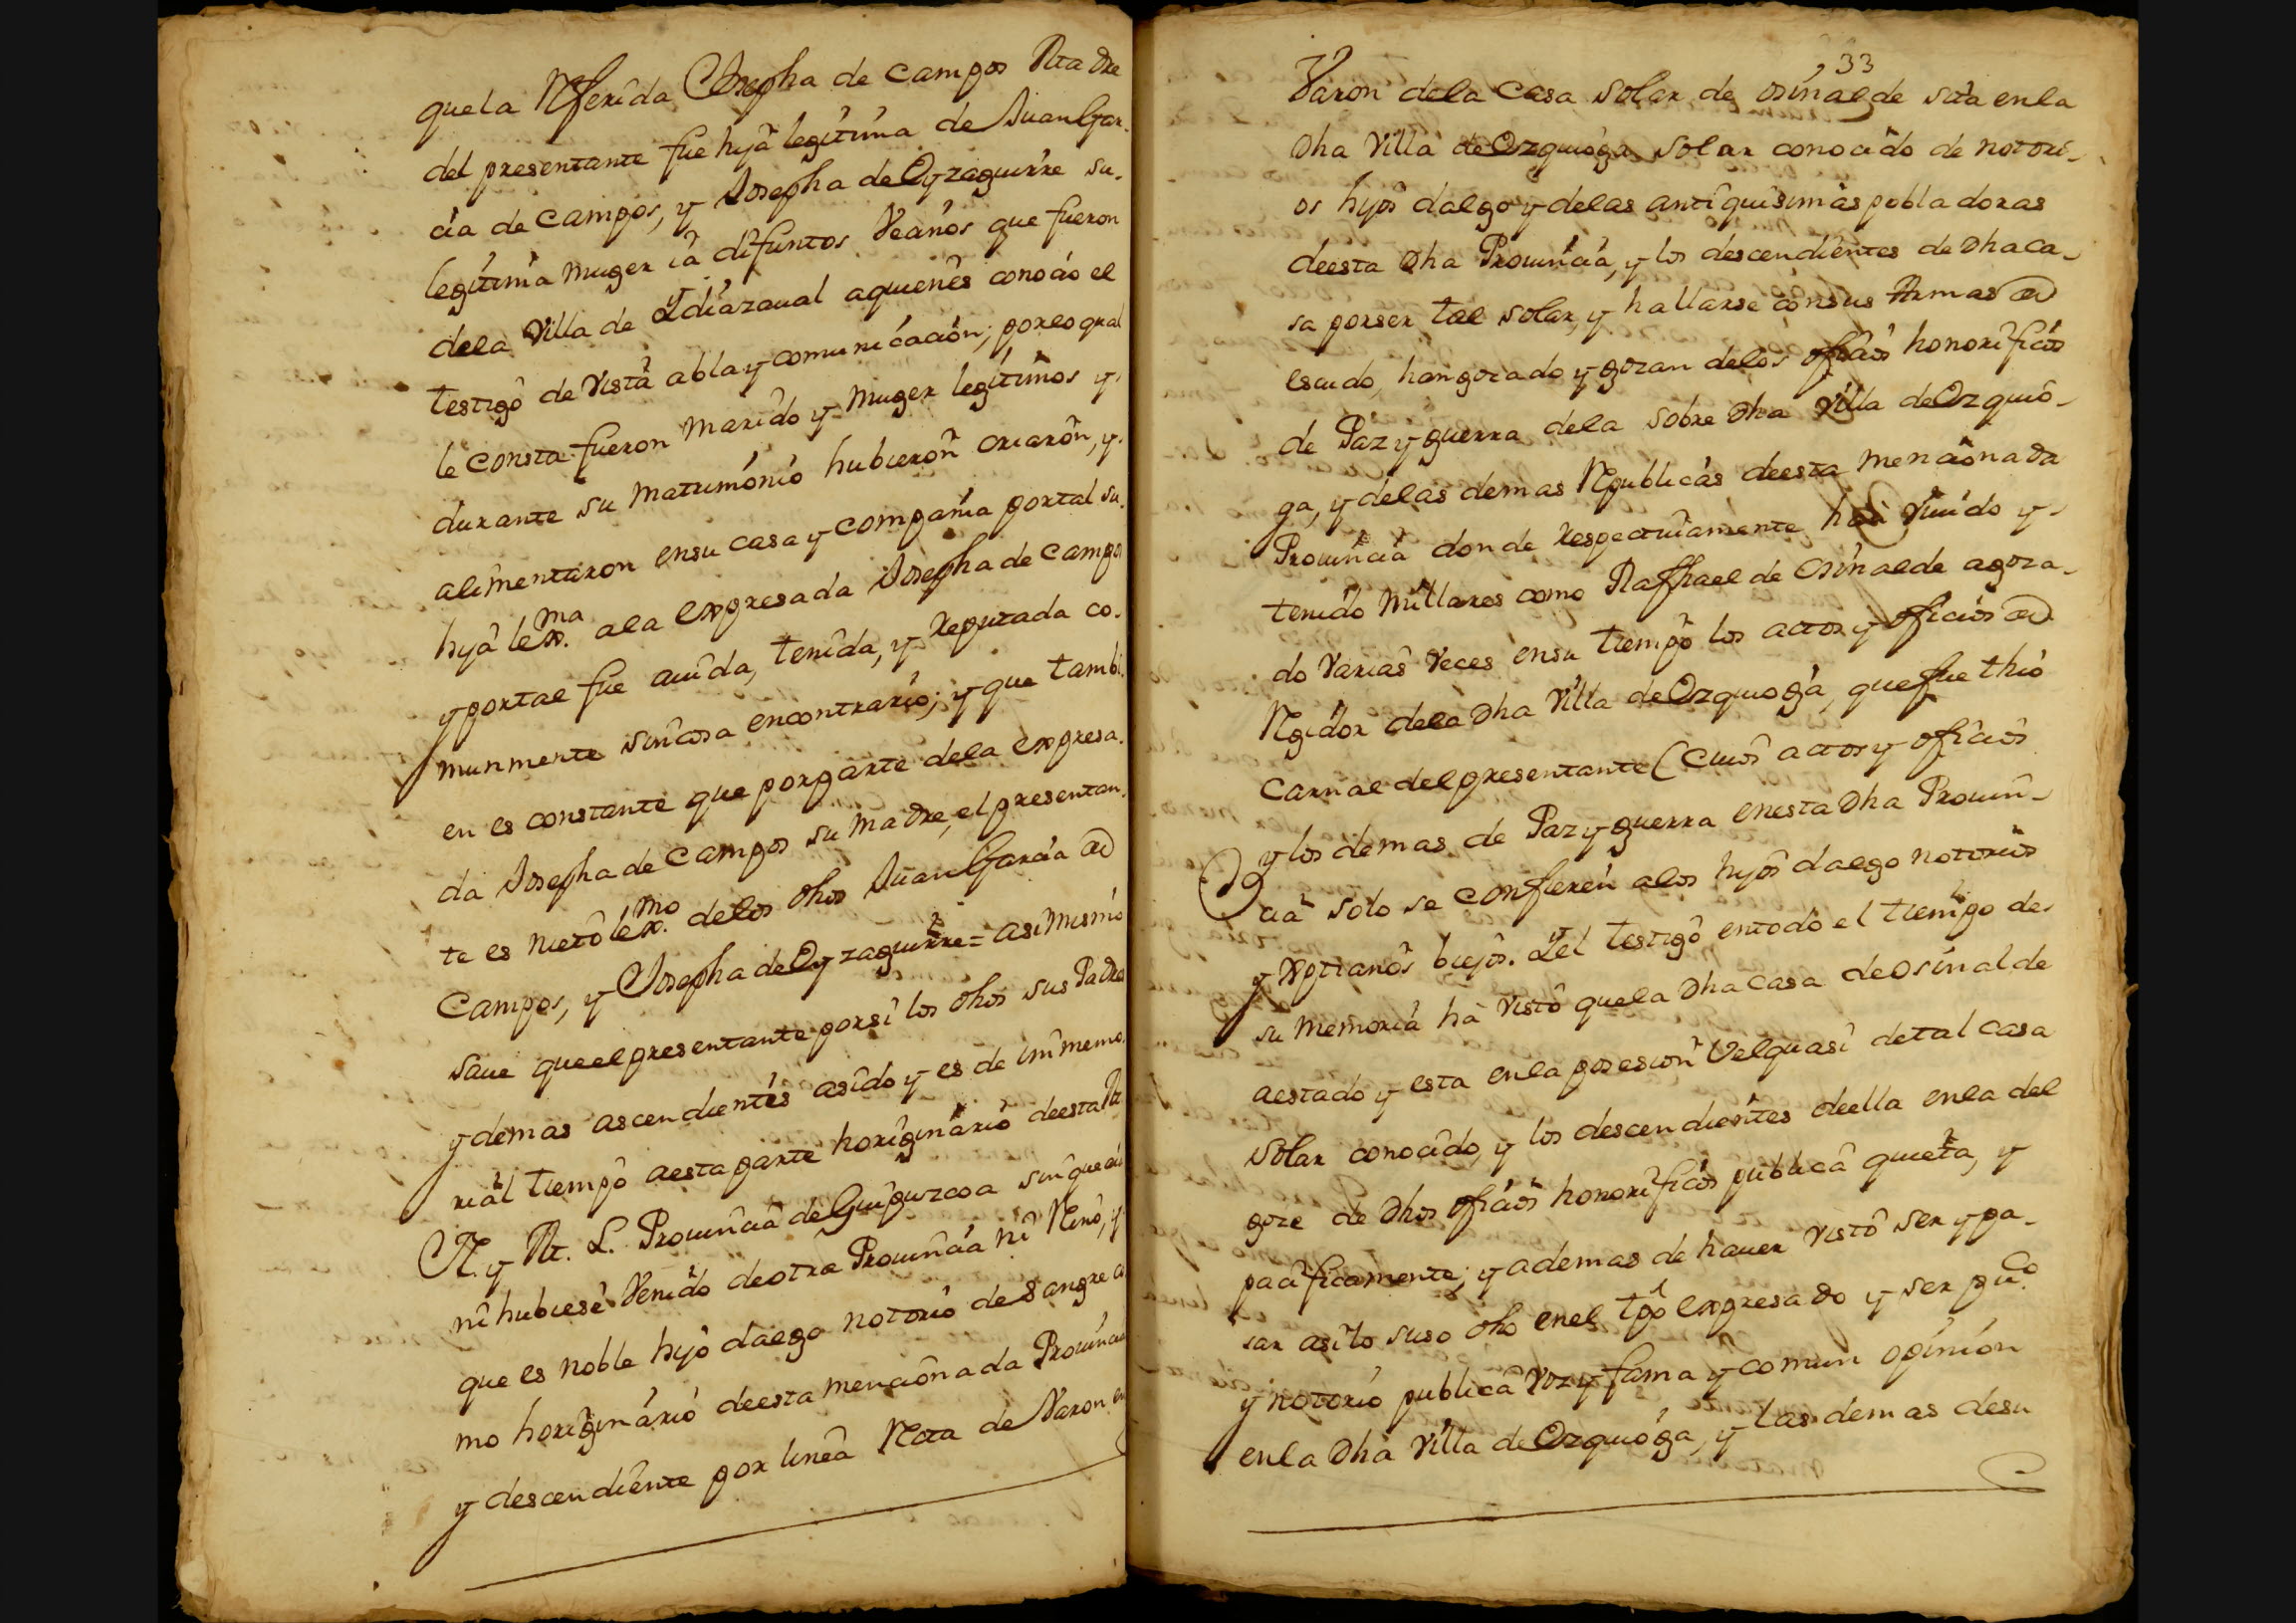 que la Referida Josepha de Campos Madre
del presentante fue hija legítima de Juan Gar-
cia de Campos, y Josepha de Oyzaguirre su
legítima muger ia difuntos Vecinos que fueron
dela Villa de Ydiazaual aquienes conocio el
testigo de Vista abla y comunicación; porlo qual
le consta fueron marido y muger legítimos y
durante su matrimonio hubieron criaron, y
alimentaron ensu casa y compañia portal su
hija lexma. ala expresada Josepha de Campos
yportal fue auida, tenida, y Reputada co-
munmente sincosa encontrario; y que tambi-
en es constante que porparte dela expresa-
da Josepha de Campos su madre, el presentan-
te es nieto lexmo. delos dhos Juan Garcia de
Campos, y Josepha de Oyzaguirre = asimismo
saue queel presentante porsi los dhos sus Padres
y demas ascendientes asido y es de immemo-
rial tiempo aestaparte horiginario deesta M.
N. y M. L. Prouincia de Guipuzcoa sinque
ni hubiese Venido deotra Prouincia ni Reino, y
que es noble hijo dalgo notorio de Sangre co-
mo horiginario deesta mencionada Prouincia
y descendiente por linea Recta de Varon en
33
Varon dela Casa solar de osinalde sita enla
Dha Villa de Ozquioga solar conocido de notori-
os hijos dalgo y delas antiquisimas pobladoras
deesta Dha Prouincia, y los descendientes de Dha ca-
sa porser tal solar, y hallarse consus Armas de
escudo, hangozado y gozan delos oficios honorificos
de Paz y guerra dela sobre Dha Villa de Ozquio-
ga, y delas demas Republicas deesta mencionada
Prouincia donde Respectuiamente han viuido y
tenido millares como Raffhael de Osinalde agoza-
do Varias Veces ensu tiempo los actos y oficios de
Regidor dela Dha Villa de Ozquioga, quefue thio
Carnal delpresentante (Cuios actos y oficios
y los demas de Paz y guerra enesta Dha Prouin-
cia solo se confieren alos hijos dalgo notorios
y Xptianos biejos. Yel testigo entodo el tiempo de
su memoria ha visto quela Dha casa de osinalde
aestado y esta enla posesion Velquasi detal casa
Solar conocido, y los descendientes deella enla del
goze de Dhos oficios honorificos publica quieta, y
pacificamente; y ademas de hauer visto ser ypa-
sar asilo suso dho enel tpo expresado y ser puco.
y notorio publica Voz y fama y comun opinión
enla Dha Villa de Ozquioga, y las demas desu